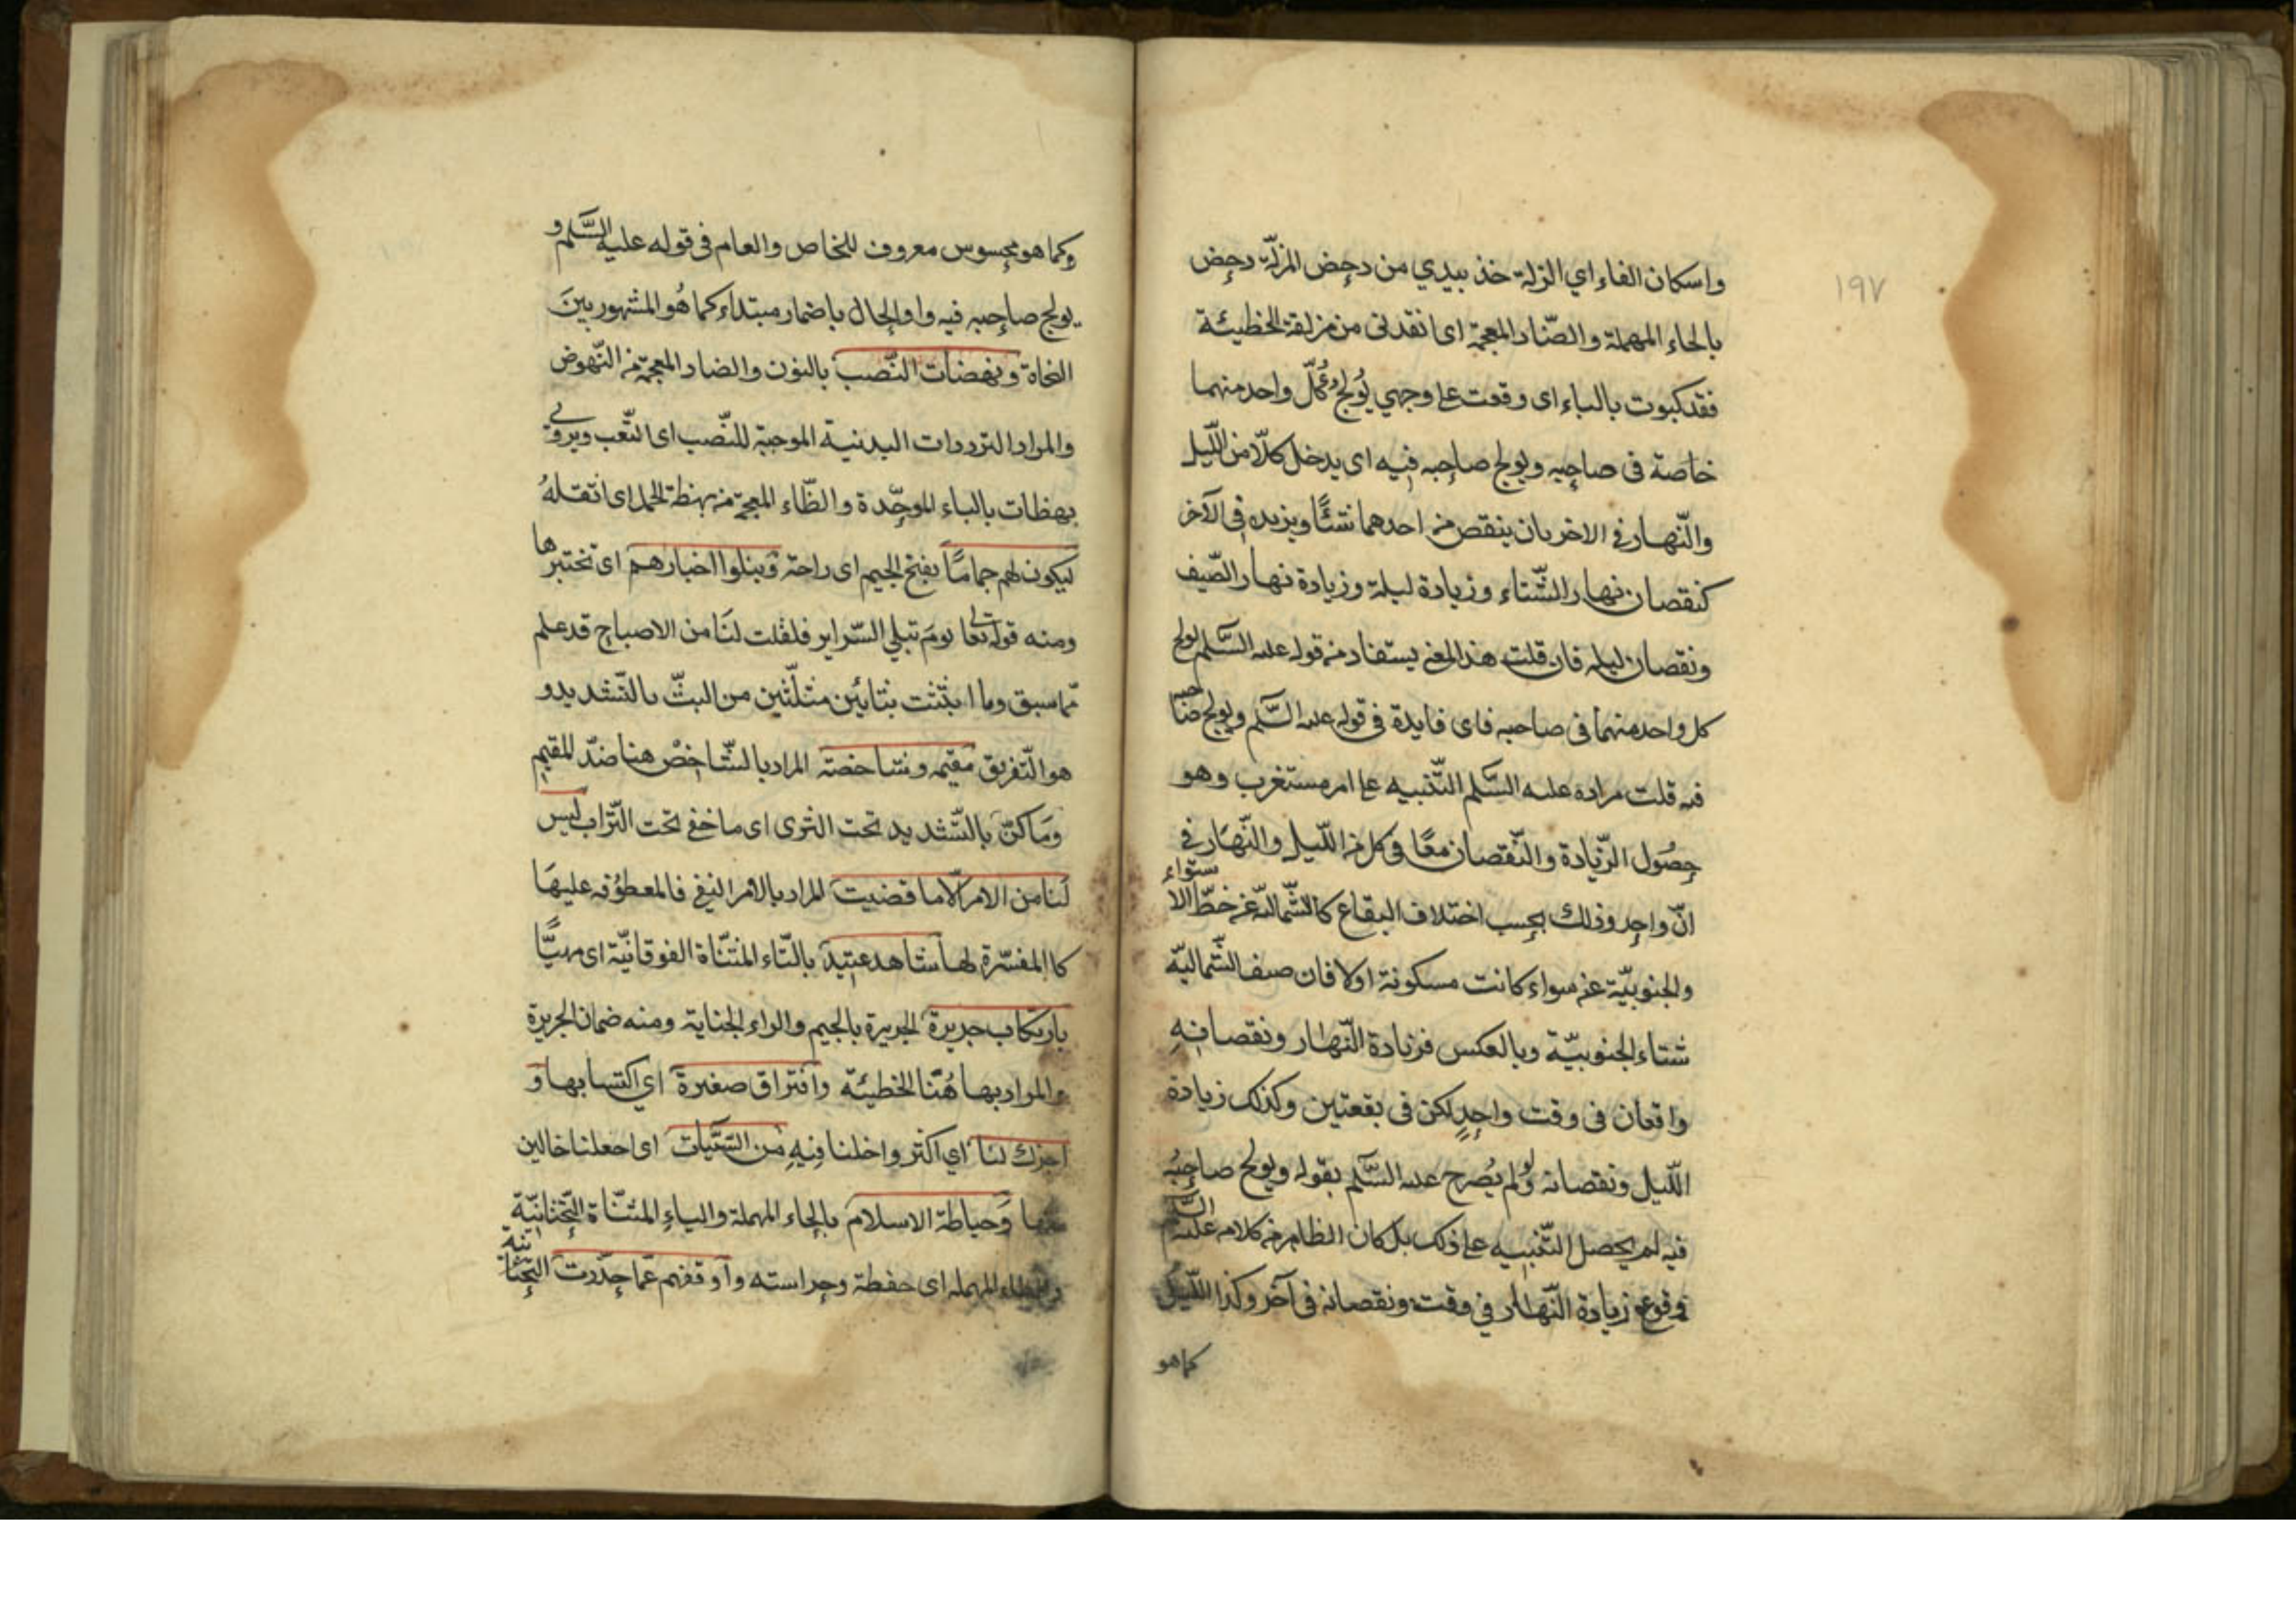 ١٩٧
واسكان الفاء اي الزلة خذ بيدي من دحض المزلّة دحض
بالحاء المهملة والضّاد المعجمة اى انقذنى من مزلقة الخطيئة
فقد كبوت بالباء اى وقعت على وجهي يُولج كُلّ واحد منهما
خاصة فى صاحبه ويولج صاحبه فيه اى يدخل كلّا من اللّيل
والنّهار فى الاخر بان ينقص من احدهما شئًا ويزيده فى الآخر
كنقصان نهار الشّتاء وزيادة ليلة وزيادة نهار الصّيف
ونقصان ليله فان قلت هذا المعنى يستفاد من قوله عليه السّلم يولج
كل واحد منهما فى صاحبه فاى فايدة فى قوله عليه السّلم ويولج صاحبه
فيه قلت مراده عليه السّلم التّنبيه على امر مستغرب وهو
حصُول الزّيادة والنّقصان معًا فى كل من اللّيل والنّهار فى
انّ واحد وذلك بحسب اختلاف البقاع كالشّماليّة عن خطّ الاستواء
والجنوبيّة عنه سواء كانت مسكونة اولا فان صيف الشّماليّة
شتاء الجنوبيّة وبالعكس فزيادة النّهار ونقصانه
واقعان فى وقت واحدٍ لكن فى بقعتين وكذلك زيادة
اللّيل ونقصانه ولو لم يُصرح عليه السّلم بقوله ويولج صاحبُه
فيه لم يحصل التّنبيه على ذلك بل كان الظاهر من كلامه عليه السّلم
وقوع زيادة النّهار في وقت ونقصانه فى آخر وكذا اللّيل
كما هو
وكما هو محسوس معروف للخاص والعام فى قوله عليه السَّلم و
يولج صاحبه فيه واو الحال باضمار مبتداء كما هُو المشهور بينَ
النحاة ونهضات النّصب بالنون والضاد المعجمة من النّهوض
والمراد الترددات البدنية الموجبة للنّصب اى التّعب ويروى فى
بهظات بالباء الموحّدة والظّاء المعجمة من بهظة الحمل اى اثقلهُ
ليكون لهم جمامًا بفتح الجيم اى راحة ويبلوا اخبارهم اى تختبرها
ومنه قوله تعالى يومَ تبلي السّراير فلقت لنَا من الاصباح قد علم
ممّا سبق وما ابثثت بثائين مثلّثين من البثّ بالتّشديد و
هو التّفريق مقيمه وشاخصة المراد بالشّاخصْ هنا ضدّ المقيم
وَما كنّ بالتّشديد تحت الثرى اى ما خفى تحت التّراب ليس
لَنا من الامر الّا ما قضيت المراد بالامر النفى فالمعطوفه عليهَا
كاالمفسّرة لها شاهد عتيد بالتّاء المثنّاة الفوقانيّة اى مهيًّا
بارتكاب جريرة الجريرة بالجيم والراء الجناية ومنه ضمان الجريرة
والمراد بها هُنَا الخطيئة واقتراق صغيرة اي اكتسابها و
اجزل لنا اي اكثر واخلنا فيهِ من السّيّئات اى اجعلنا خالين
منها وَحياطة الاسلام بالحاء المهملة والياءِ المثنّاة التّحتانيّة
والطاء المهمله اى حفظة وحراسته وآوقفهم عمّا حذّرت التّحتانيه